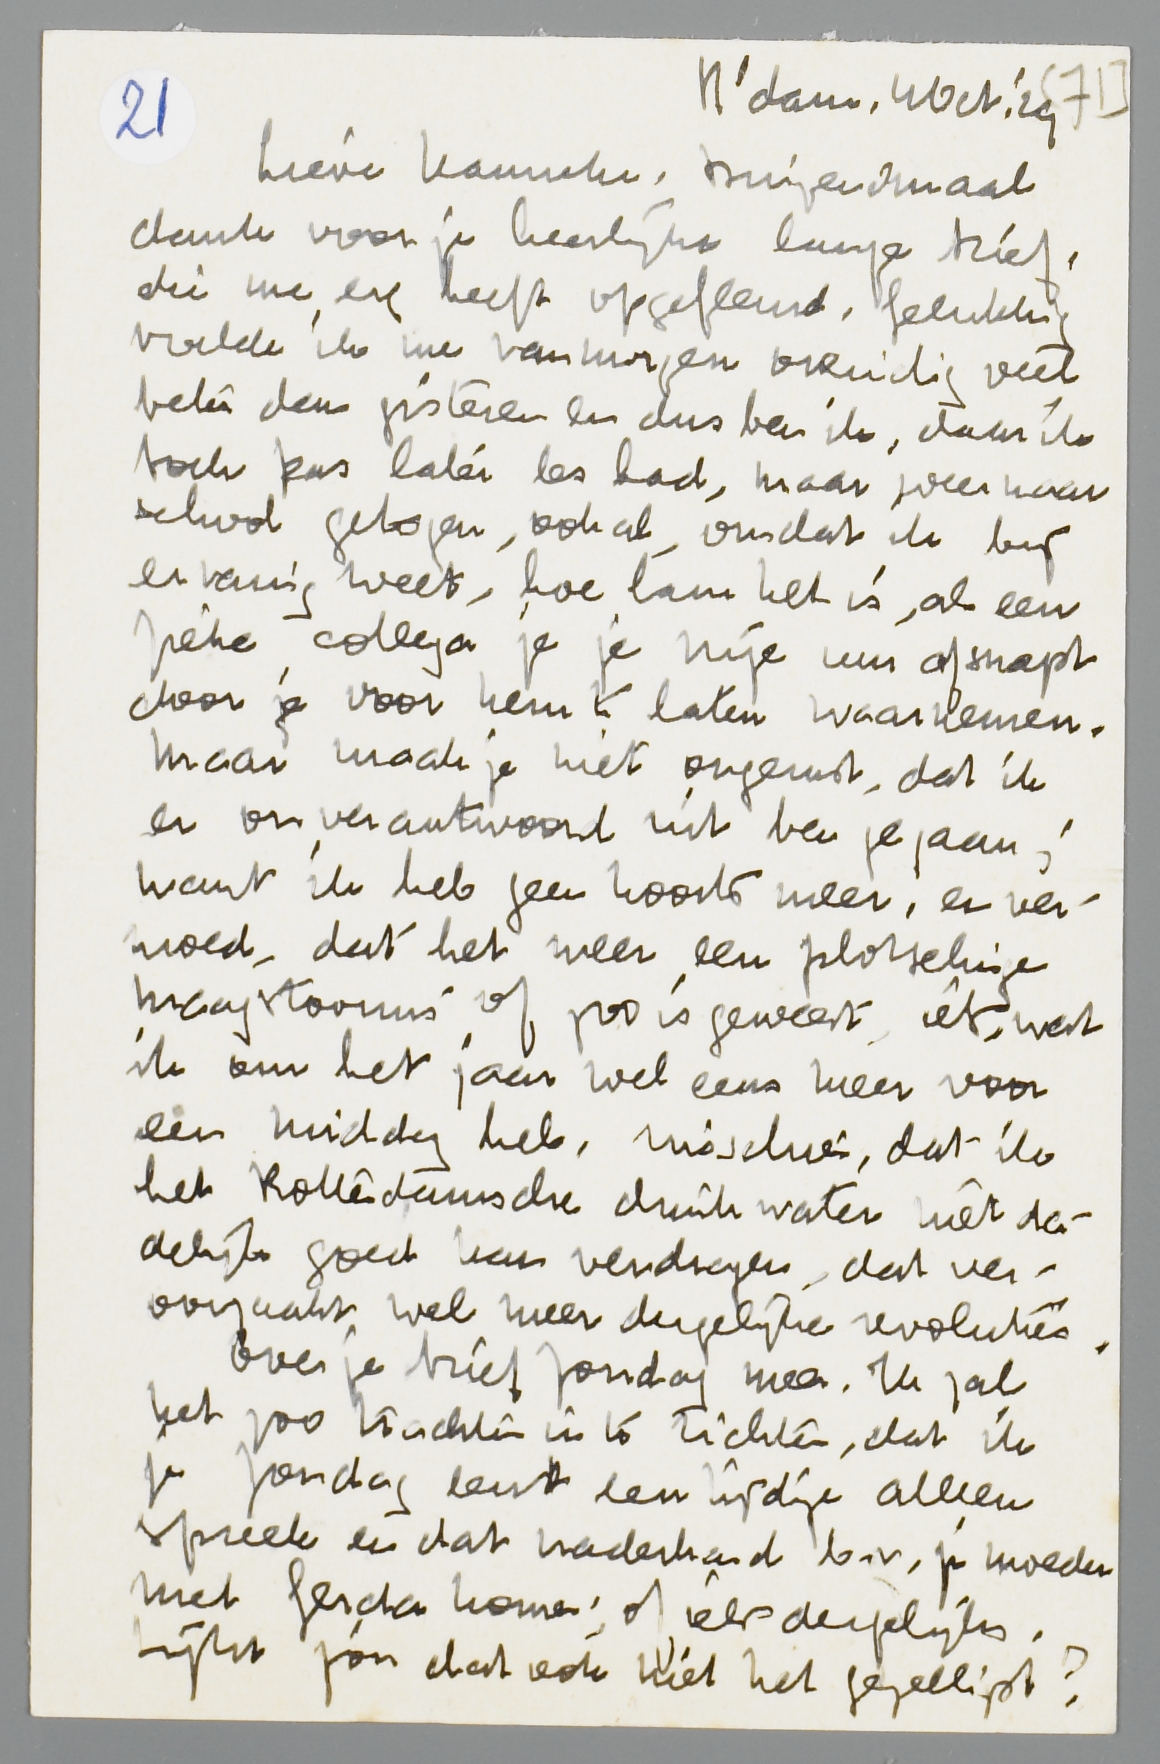 21
R'dam. Woct. '29 [71]
Lieve Hanneke, duizendmaal
dank voor je heerlijke lange brief,
die me erg heeft opgefleurd. Gelukkig
voelde ik me vanmorgen oneindig veel
beter dan gisteren en dus ben ik, daar ik
toch pas later les had, maar weer naar
school getogen, ook al, omdat ik bij
ervaring weet, hoe lam het is, als een
zieke collega je je vrije uur afsnapt
door je voor hem te laten waarnemen.
Maar maak je niet ongerust, dat ik
er onverantwoord uit ben gegaan;
want ik heb geen koorts meer, en ver-
moed, dat het weer een plotselinge
maagstoornis of zoo is geweest, iets, wat
ik om het jaar wel eens meer voor
een middag heb, misschien, dat ik
het Rotterdamsche drinkwater niet da-
delijk goed kan verdragen, dat ver-
oorzaakt wel meer dergelijke revoluties.
Over je brief Zondag meer. Ik zal
het zoo trachten in te richten, dat ik
je Zondag eerst een tijdje alleen
spreek en dat naderhand b.v. je moeder
met Gerda komen, of iets dergelijks.
Lijkt jou dat ook niet het gezelligst?